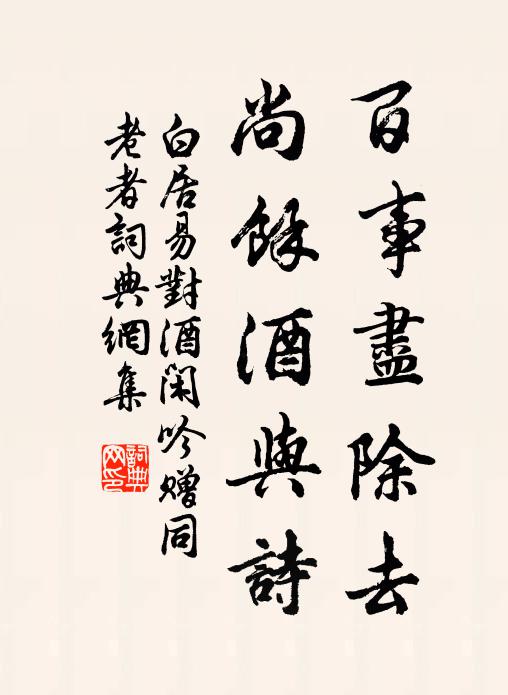 百事盡除去
尚餘酒與詩
白居易對酒閑吟贈同
老者詞典網集
詞典网印